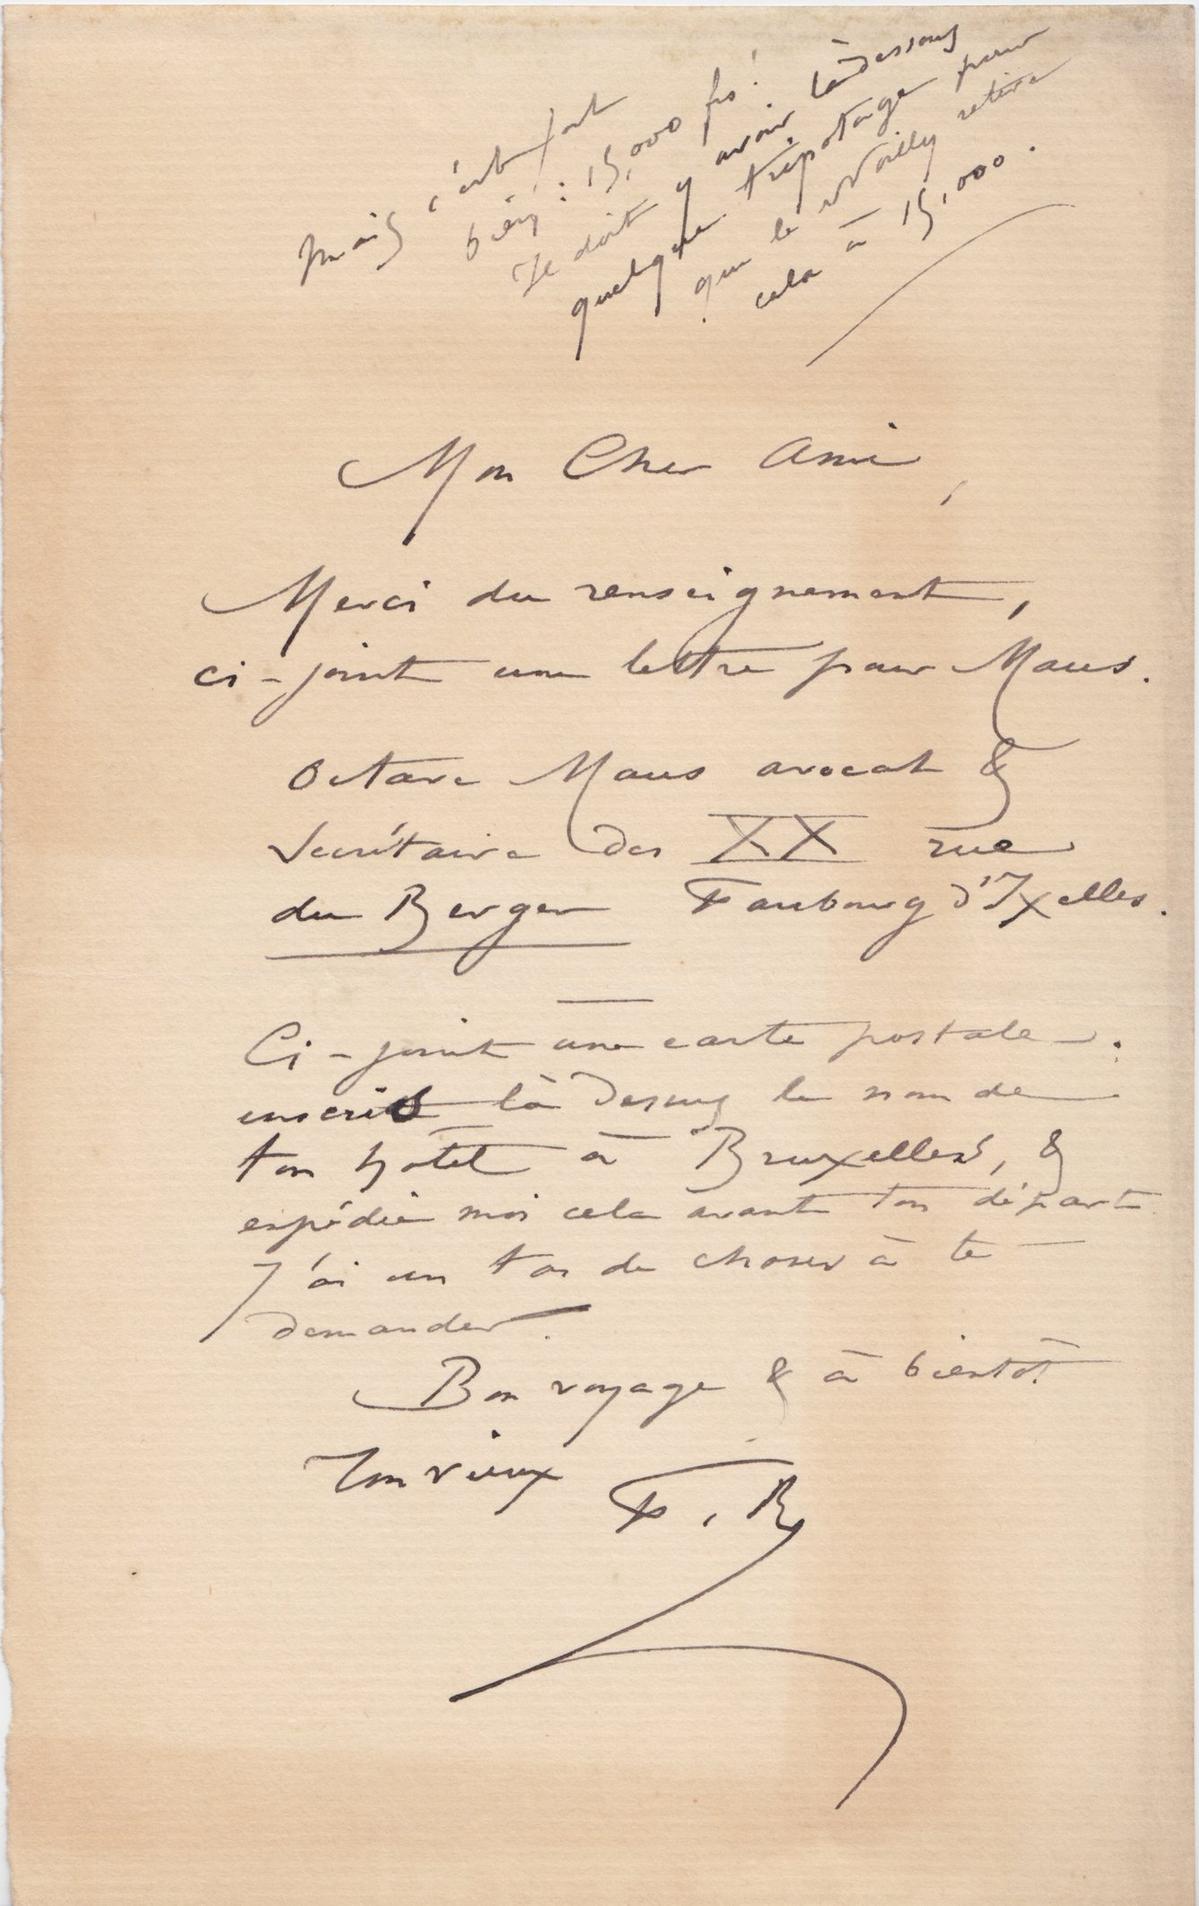 Mais c'est fort
bien : 15,000 frs !
Il doit y avoir làdessous
quelque tripotage pour
que le Wailly retire
cela à 15,000.
Mon Cher Ami,
Merci du renseignement,
ci-joint une lettre pour Maus.
Octave Maus avocat &
Secrétaire des XX rue
du Berger Faubourg d'Ixelles.
Ci-joint une carte postale.
inscris là dessus le nom de
ton hôtel à Bruxelles, &
expédie moi cela avant ton départ
J'ai un tas de choses à te
demander.
Bon voyage & à bientôt
Ton vieux
F. B